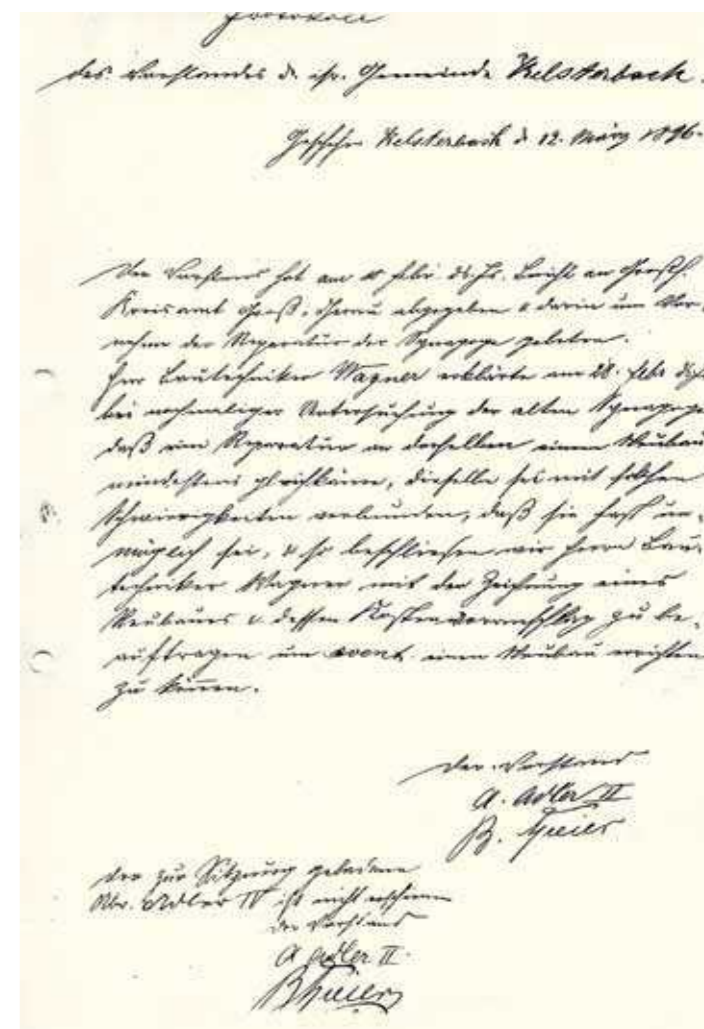 Protokoll
des Vorstandes d. isr. Gemeinde Kelsterbach.
Geschehen Kelsterbach d. 12. März 1896.
Der Vorstand hat am Febr. ds. Js. Bericht an Großh.
Kreisamt Groß-Gerau abgegeben u darin um Vor-
nahme der Reparatur der Synagoge gebeten.
Herr Bautechniker Wagner erklärte am 28. Febr ds Js
bei nochmaliger Untersuchung der alten Synagoge
daß eine Reparatur an derselben einem Neubau
mindestens gleichkäme, dieselbe sei mit solchen
Schwierigkeiten verbunden, daß sie fast un-
möglich sei, u so beschliesen wir Herrn Bau-
techniker Wagner mit der Zeichnung eines
Neubaues u. dessen Kostenvoranschlag zu be-
auftragen um event. einen Neubau errichten
zu können.
Der Vorstand
A. Adler II
B.
der zur Sitzung geladene
Abr. Adler IV ist nicht erschienen
Der Vorstand
A Adler II.
B